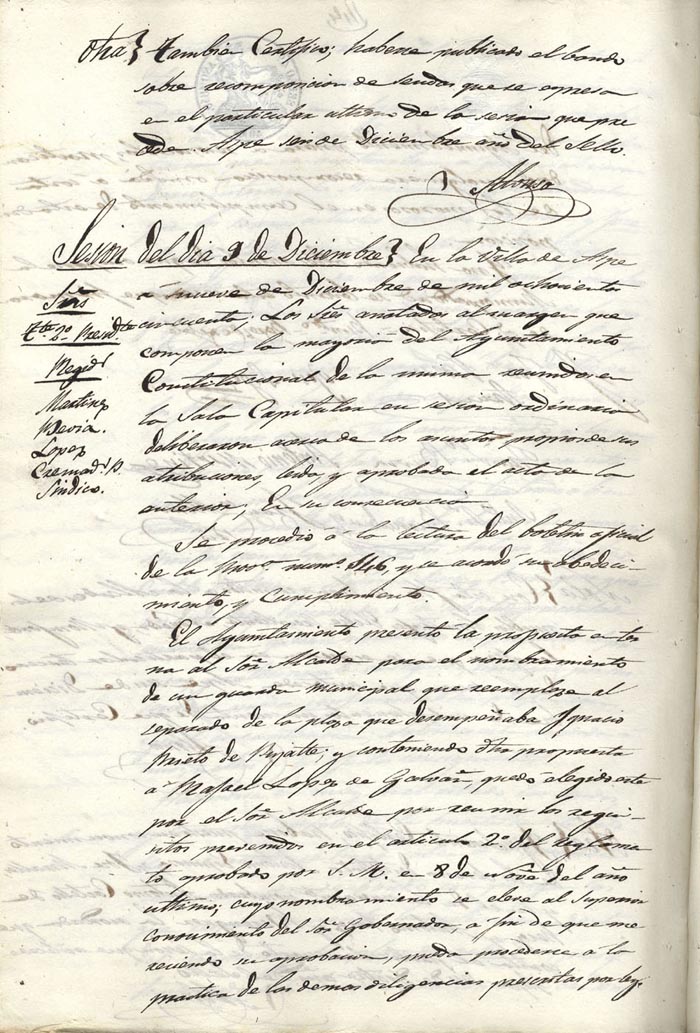 Otra} Tambien Certifico; haberse publicado el bando
sobre recomposicion de sendas que se espresa
en el particular ultimo de la sesion que pre
cede. Aspe seis de Diciembre año del Sello.
Alonso
Sesion del dia 9 de Diciembre} En la Villa de Aspe
á nueve de Diciembre de mil ochociento
cincuenta; Los Sres anotados al margen que
componen la mayoria del Ayuntamiento
Constitucional de la misma reunidos en
la Sala Capitular en sesion ordinaria
deliberaron acerca de los asuntos propios de sus
atribuciones, leida, y aprobada el acta de la
anterior, En su consecuencia
Sres
Tte. 2º Presidte
Regids
Martinez
Mevia.
Lopez
Cremads. p.
Sindico.
Se procedió á la lectura del boletin oficial
de la Prova numº 146, y se acordó su obedeci-
miento, y Cumplimiento.
El Ayuntamiento presentó la propuesta en ter
na al Señor Alcalde para el nombramiento
de un guarda municipal que reemplase al
separado de la plaza que desempeñaba Ignacio
Prieto de; y conteniendo dha propuesta
a Rafael Lopez de Galvañ, quedó elegido este
por el Sor Alcalde por reunir los requi-
sitos prevenidos en el articulo 2º. del reglamen
tó aprobado por S. M. en 8 de Nove. del año
ultimo; cuyo nombramiento se eleve al Superior
conocimiento del Sor Gobernador, a fin de que me
reciendo su aprobacion, pueda procederse a la
practica de las demas diligencias prescritas por ley.